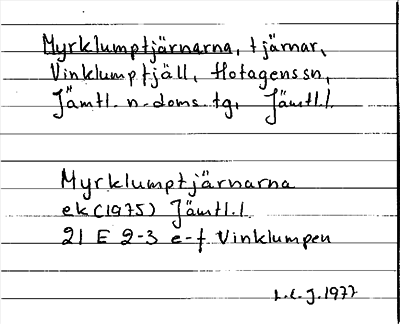 Myrklumptjärnarna, tjärnar,
Vinklumptjäll, Hotagens sn,
Jämtl. n. doms. tg, Jämtl.l.
Myrklumptjärnarna
ek (1975) Jämtl.l
21 E 2-3 e-f Vinklumpen
L.E.J. 1977